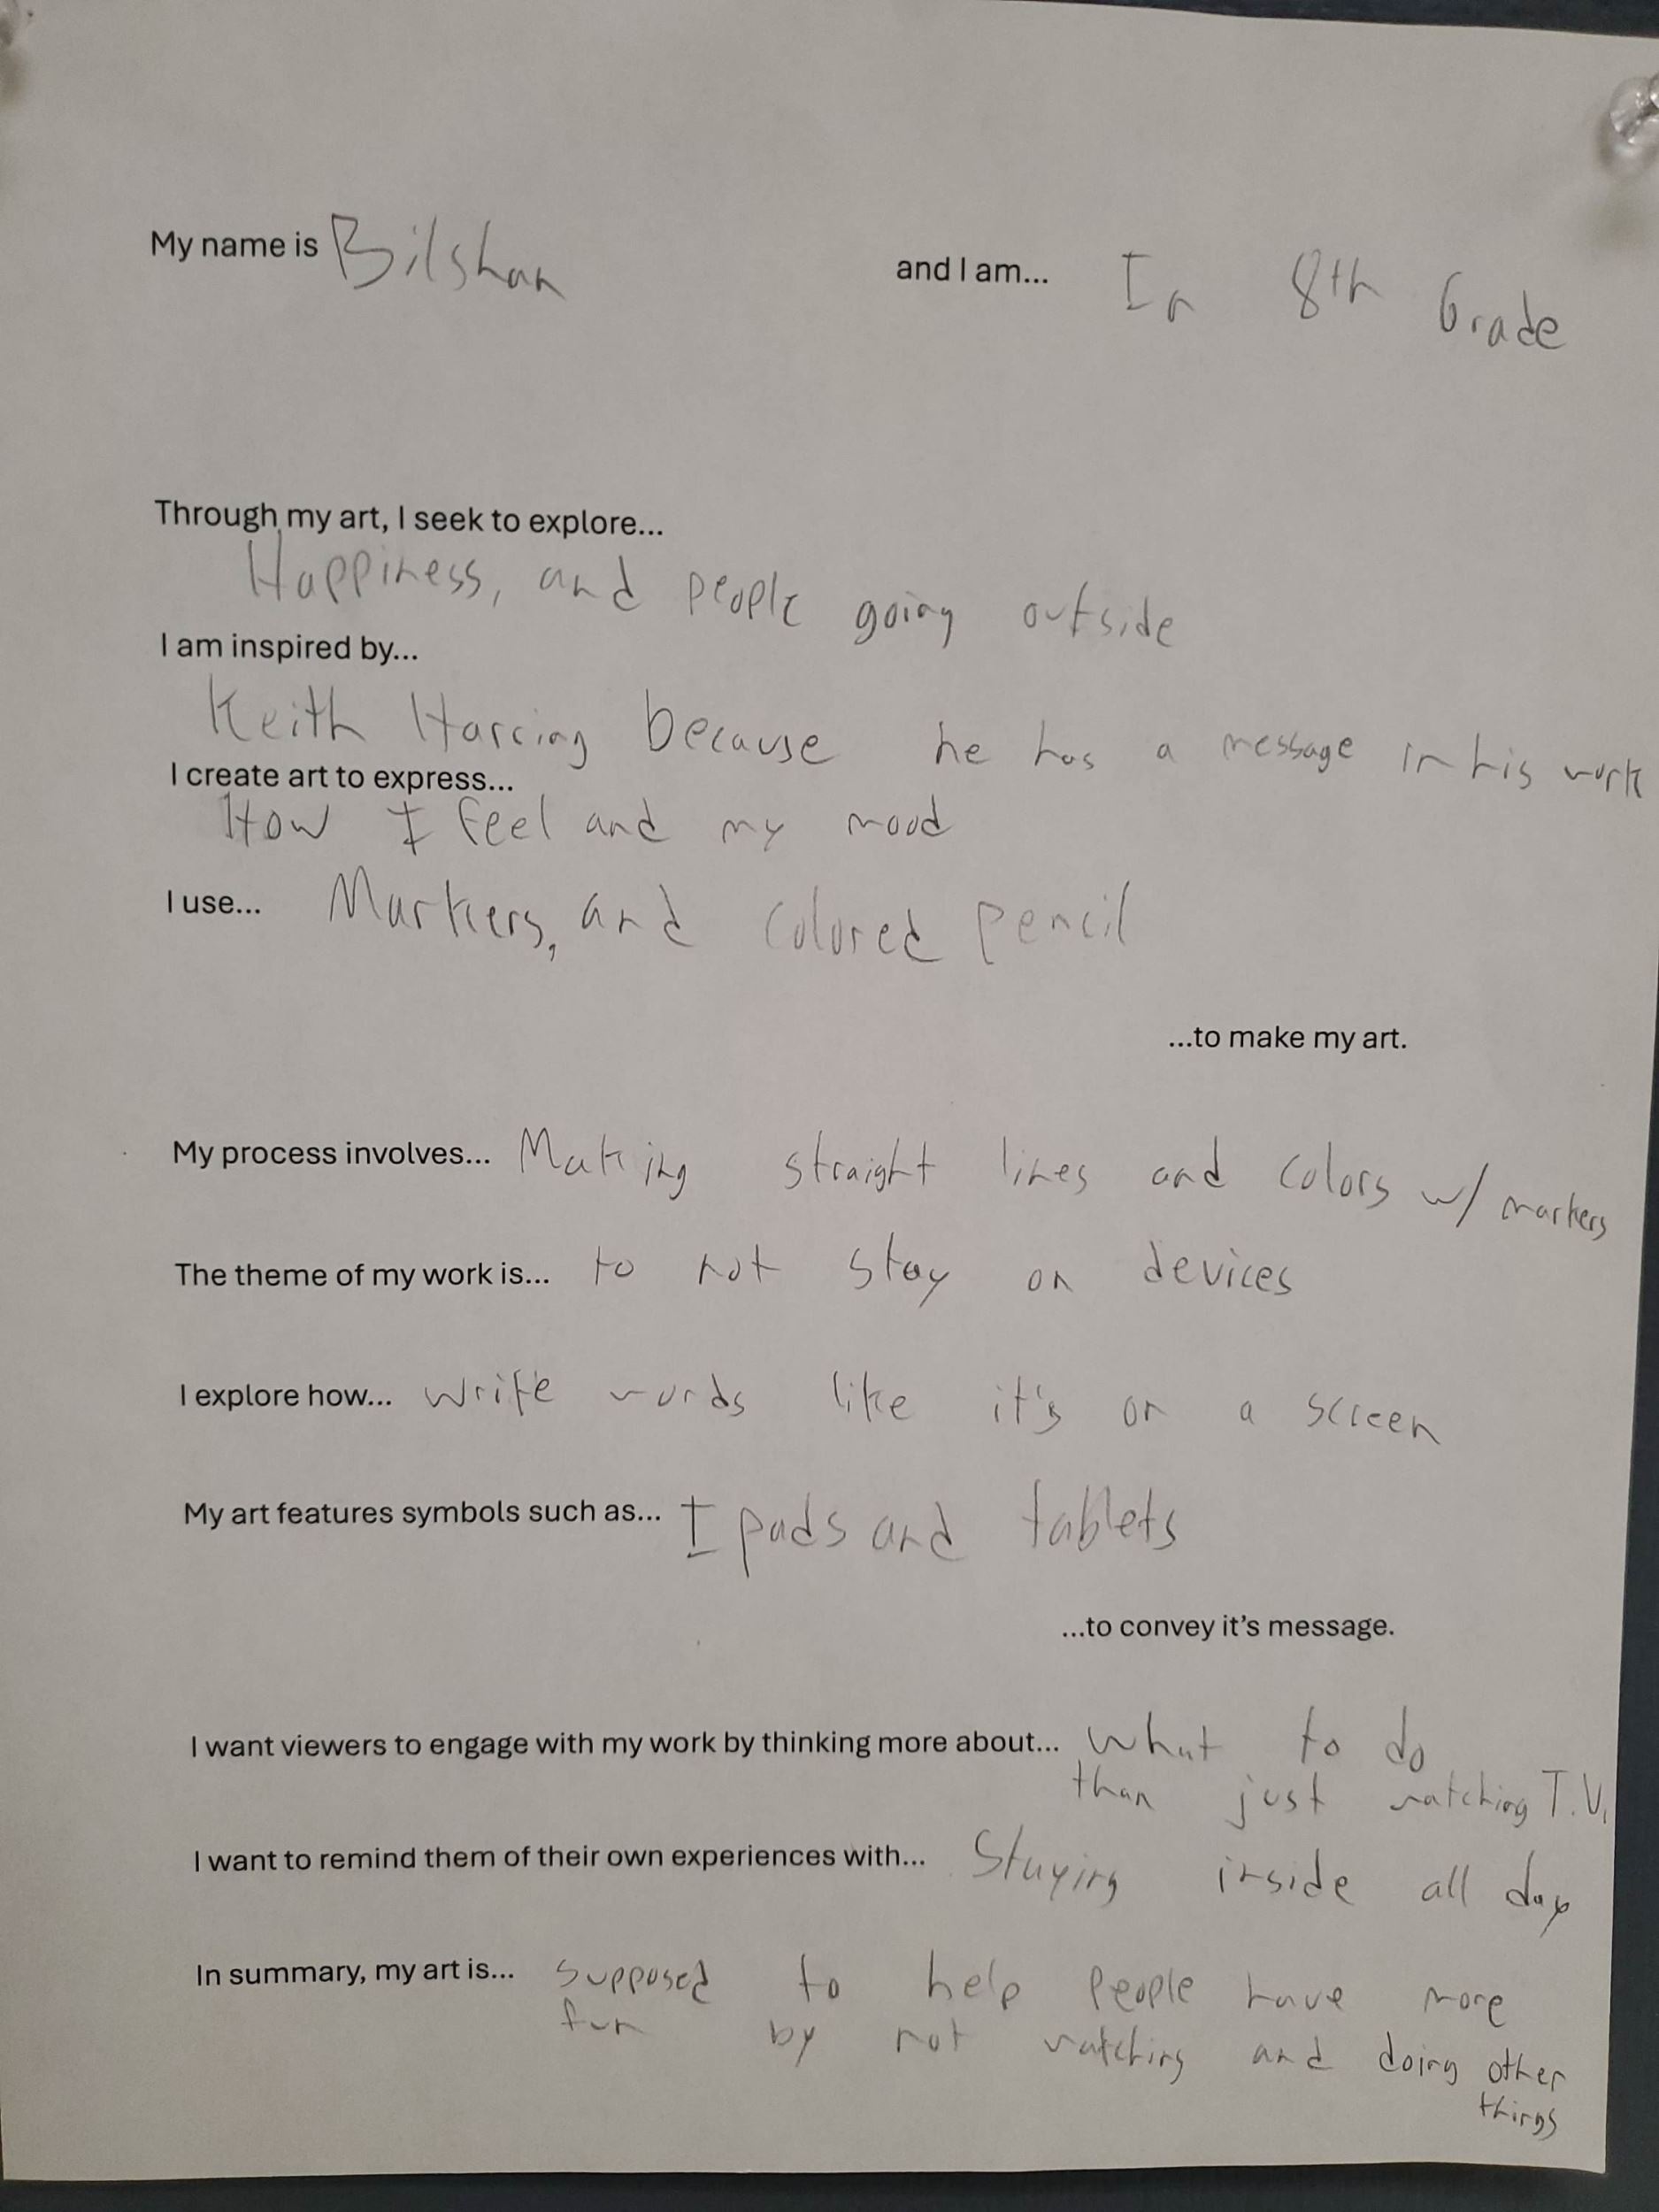 My name is Bilshan and I am... In 8th Grade
Through my art, I seek to explore...
Happiness, and people going outside
I am inspired by...
Keith Harcing because he has a message in his work
I create art to express...
How I feel and my mood
I use... Markers, and colored pencil
...to make my art.
My process involves... Making straight lines and colors w/ markers
The theme of my work is... to not stay on devices
I explore how... write words like it's on a screen
My art features symbols such as... I pads and tablets
...to convey it's message.
I want viewers to engage with my work by thinking more about... what to do
than just watching T.V.
I want to remind them of their own experiences with... Staying inside all day
In summary, my art is... supposed to help people have more
fun by not watching and doing other
things